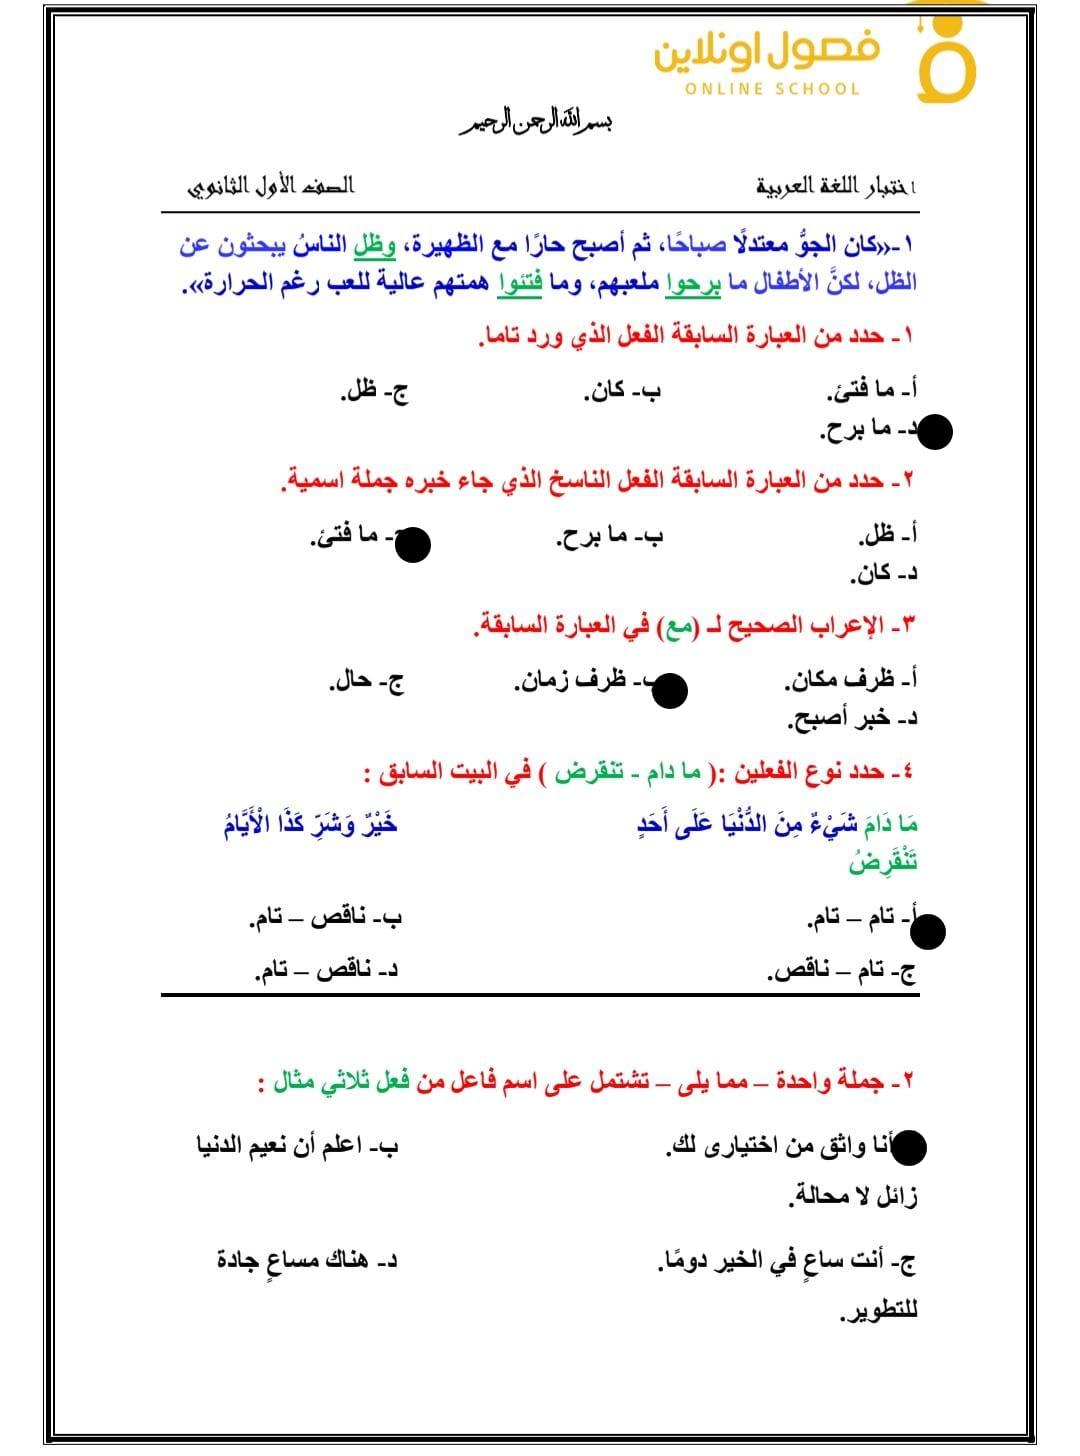 فصول اونلاين
ONLINE SCHOOL
بسم الله الرحمن الرحيم
اختبار اللغة العربية الصف الأول الثانوي
١-«كان الجوُّ معتدلًا صباحًا، ثم أصبح حارًا مع الظهيرة، وظل الناسُ يبحثون عن
الظل، لكنَّ الأطفال ما برحوا ملعبهم، وما فتئوا همتهم عالية للعب رغم الحرارة».
١- حدد من العبارة السابقة الفعل الذي ورد تاما.
أ- ما فتئ. ب- كان. ج- ظل.
د- ما برح.
٢- حدد من العبارة السابقة الفعل الناسخ الذي جاء خبره جملة اسمية.
أ- ظل. ب- ما برح. ج- ما فتئ.
د- كان.
٣- الإعراب الصحيح لـ (مع) في العبارة السابقة.
أ- ظرف مكان. ب- ظرف زمان. ج- حال.
د- خبر أصبح.
٤- حدد نوع الفعلين :( ما دام - تنقرض ) في البيت السابق :
مَا دَامَ شَيْءٌ مِنَ الدُّنْيَا عَلَى أَحَدٍ خَيْرٌ وَشَرٌ كَذَا الْأَيَّامُ
تَنْقَرِضُ
أ- تام – تام. ب- ناقص – تام.
ج- تام – ناقص. د- ناقص – تام.
٢- جملة واحدة – مما يلى – تشتمل على اسم فاعل من فعل ثلاثي مثال :
أنا واثق من اختيارى لك. ب- اعلم أن نعيم الدنيا
زائل لا محالة.
ج- أنت ساعٍ في الخير دومًا. د- هناك مساعٍ جادة
للتطوير.